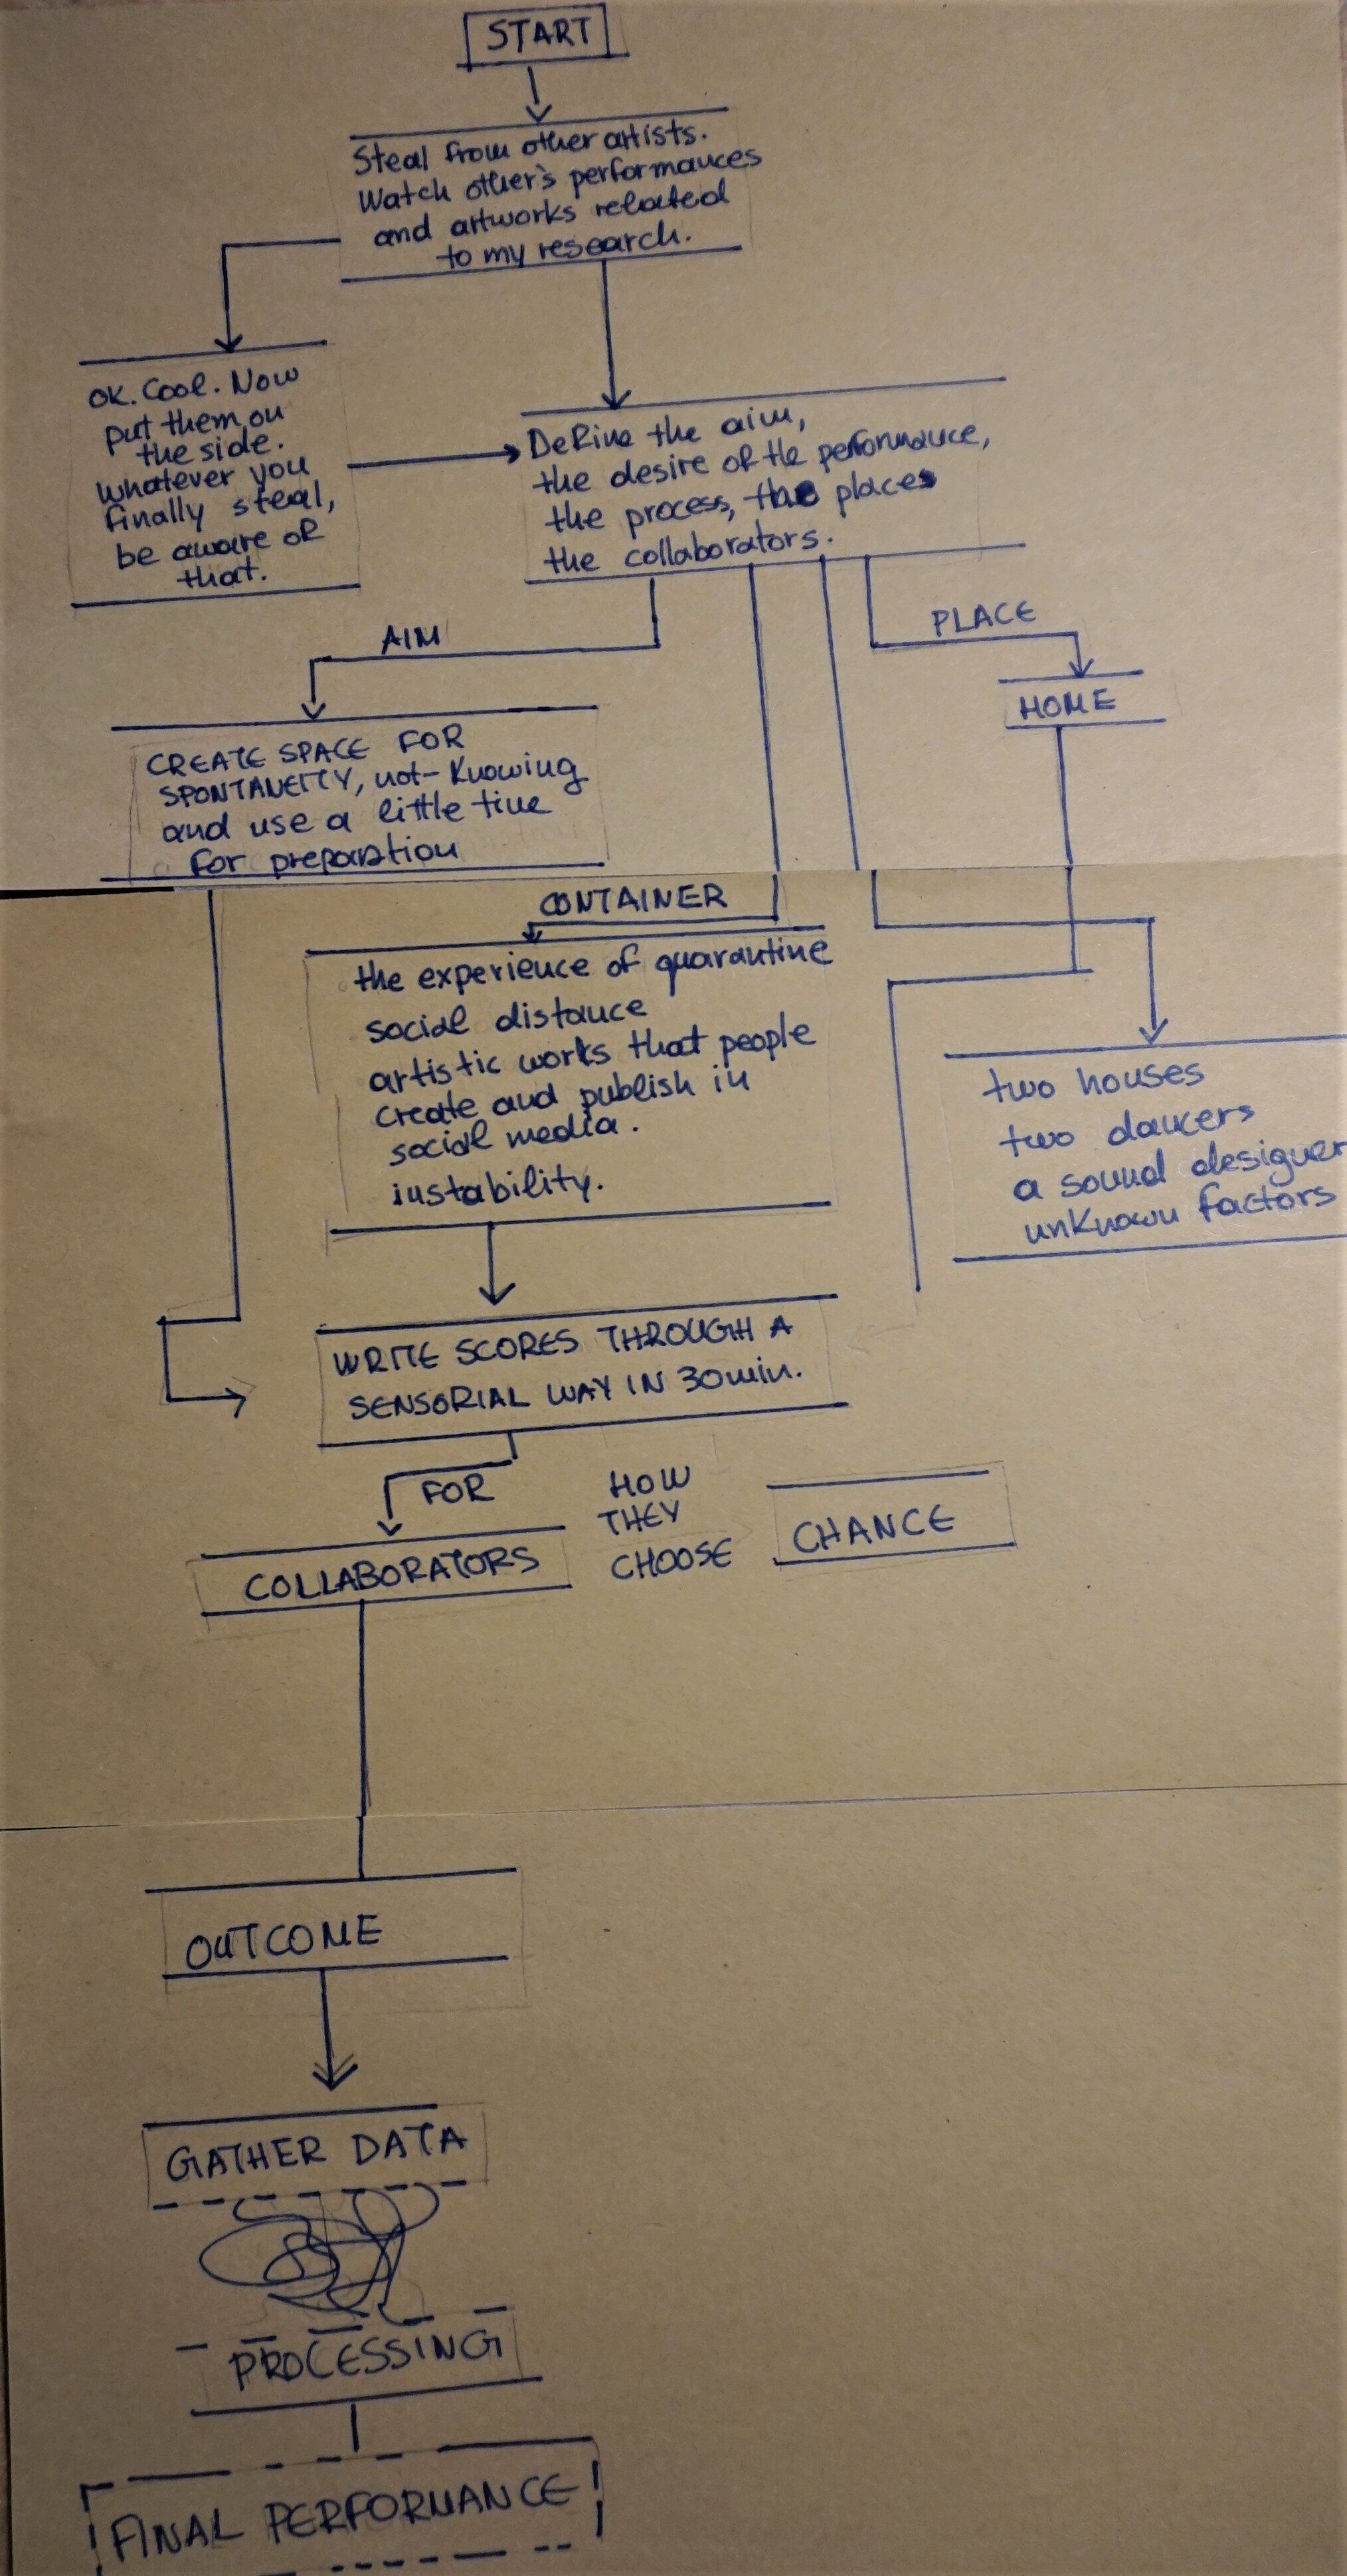 START
Steal from other artists.
Watch other's performances
and artworks related
to my research.
OK. Cool. Now
put them on
the side.
whatever you
finally steal,
be aware of
that.
Define the aim,
the desire of the performance,
the process, the places
the collaborators.
AIM
PLACE
HOME
CREATE SPACE FOR
SPONTANEITY, not-knowing
and use a little time
for preparation
CONTAINER
the experience of quarantine
social distance
artistic works that people
create and publish in
social media.
instability.
two houses
two dancers
a sound designer
unknown factors
WRITE SCORES THROUGH A
SENSORIAL WAY IN 30min.
FOR
COLLABORATORS
HOW
THEY
CHOOSE
CHANCE
OUTCOME
GATHER DATA
PROCESSING
FINAL PERFORMANCE